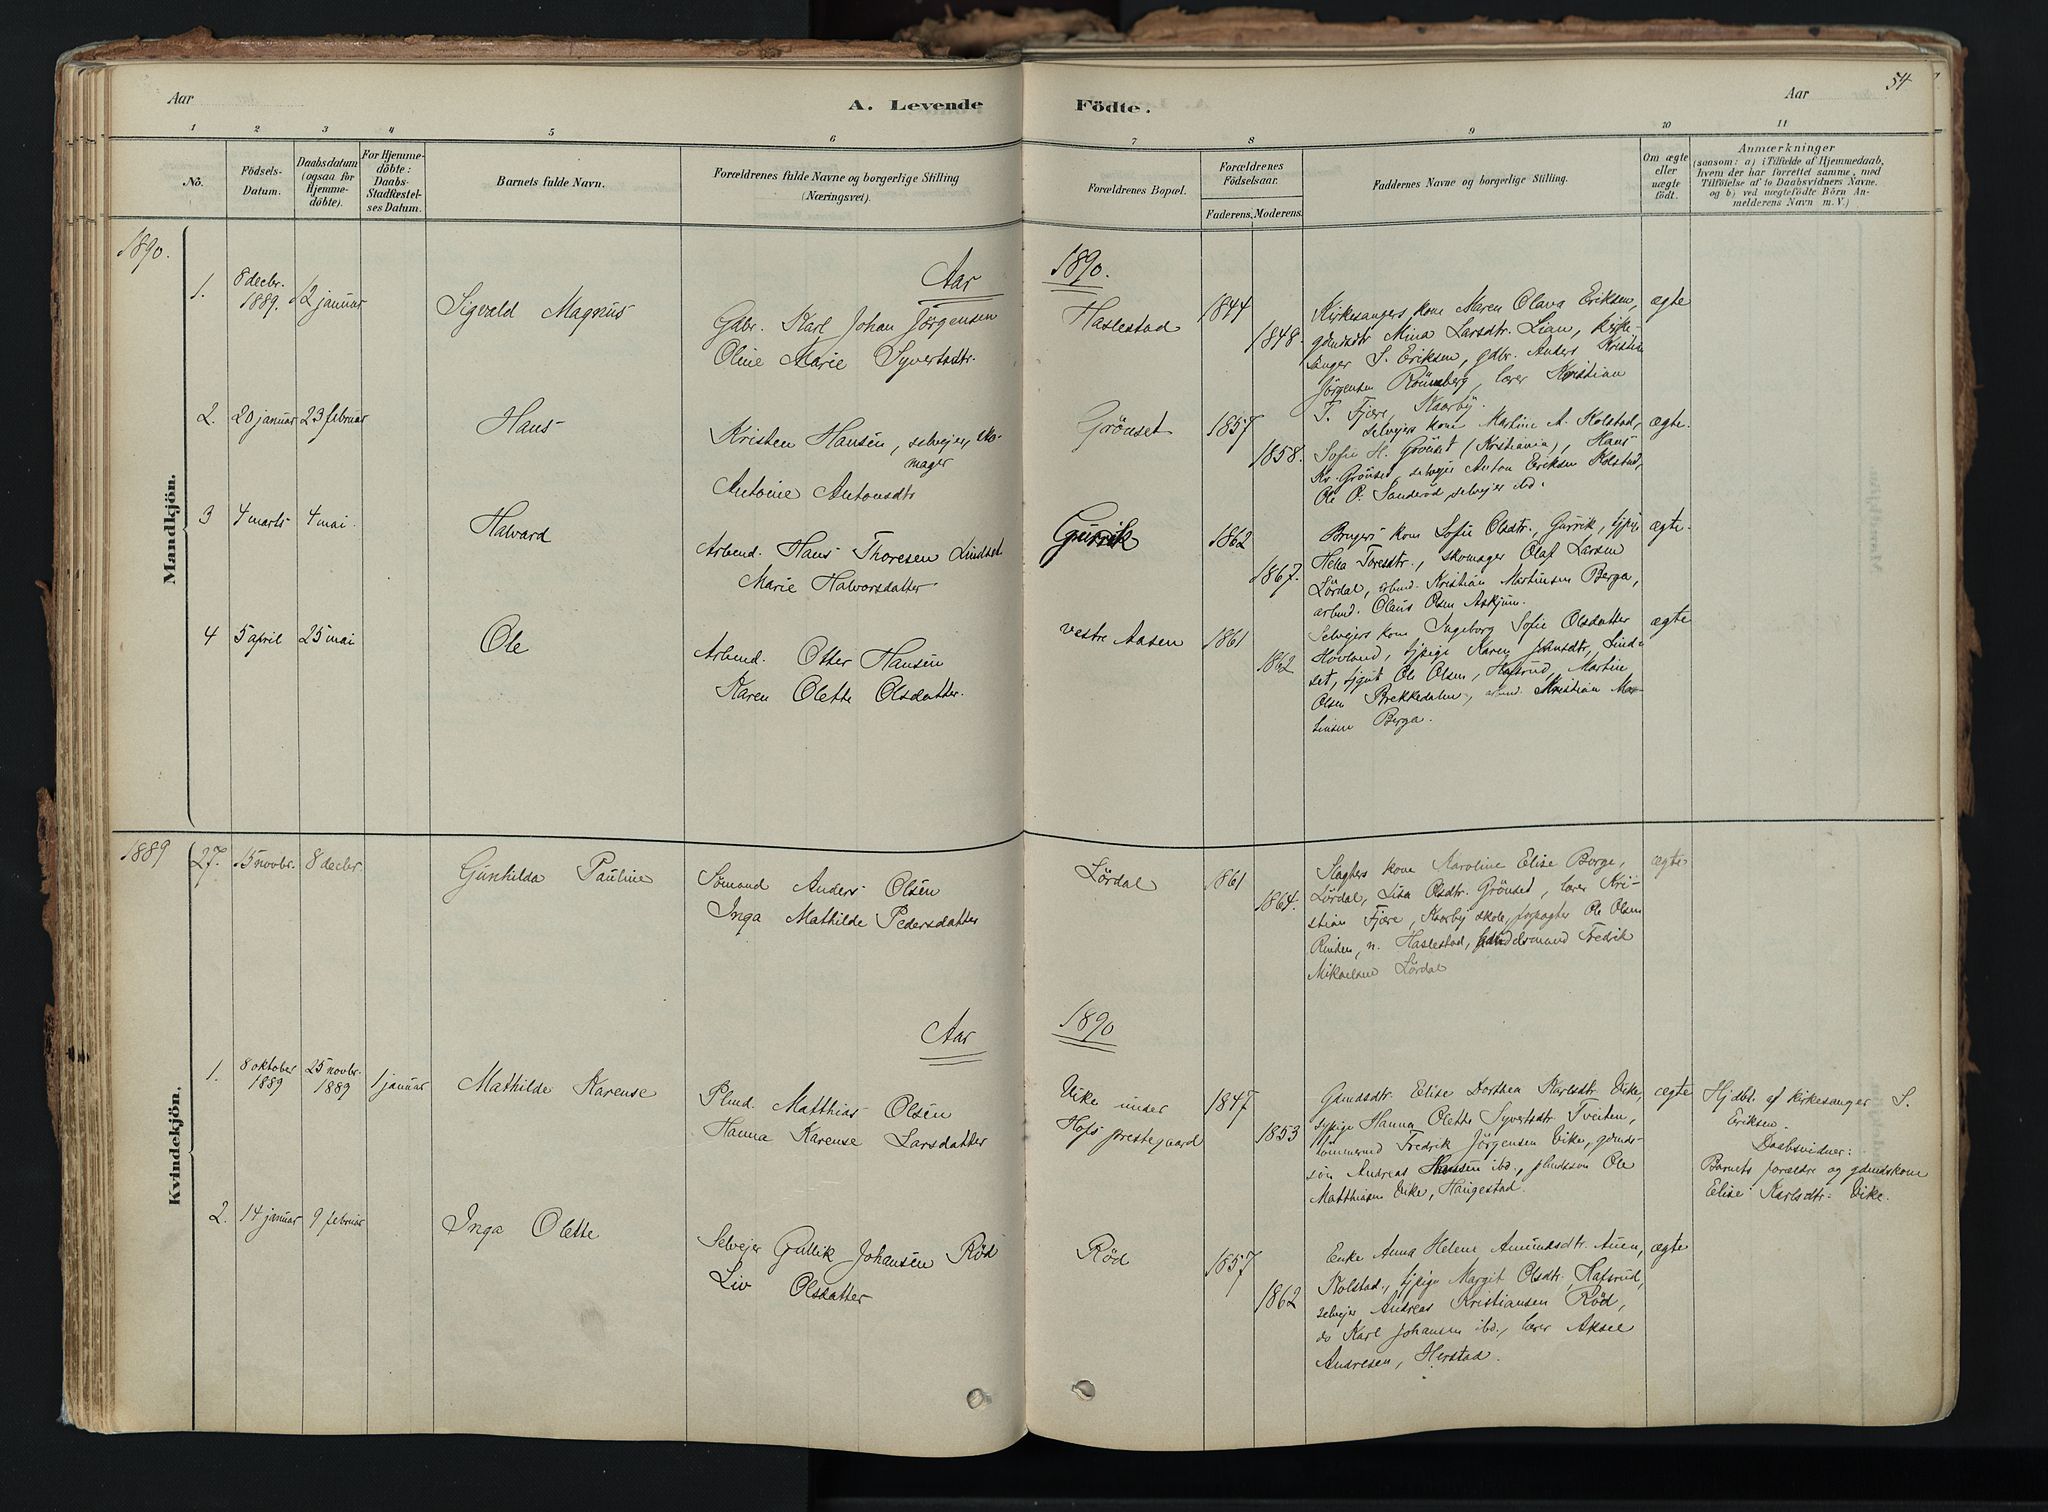 Aar
A. Levende
Födte.
Aar
54
1 2 3 4 5 6 7 8 9 10 11
No.
Födsels-
Datum.
Daabsdatum
(ogsaa for
Hjemme-
döbte).
For Hjemme-
döbte:
Daabs-
Stadfæstel-
ses Datum.
Barnets fulde Navn.
Forældrenes fulde Navne og borgerlige Stilling
(Næringsvei).
Forældrenes Bopæl.
Forældrenes
Födselsaar.
Faderens. Moderens.
Faddernes Navne og borgerlige Stilling.
Om ægte
eller
uægte
födt.
Anmærkninger
(saasom: a) i Tilfælde af Hjemmedaab,
hvem der har forrettet samme, med
Tilföielse af to Daabsvidners Navne,
og b) ved uægtefödte Börn An-
melderens Navn m. V.)
Mandkjön.
1890.
Aar 1890.
1.
8 decbr.
1889.
12 januar
Sigvald Magnus
Gdbr. Karl Johan Jörgensen
Oline Marie Syvertsdtr.
Haslestad
1844
1848.
Kirkesangers kone Maren Olava Eriksen,
gdmdsdtr Mina Larsdtr. Lian, kirke-
sanger S. Eriksen, gdbr. Anders Kristian
Jörgensen Rönneberg, lærer Kristian
T. Fjære, Kaarby.
ægte
2.
20 januar
23 februar
Hans
Kristen Hansen, selvejer, sko-
mager
Antoine Antonsdtr
Grönset
1857
1858.
selvejers kone Martine A. Kolstad,
Sofie H. Grönset (Kristiania), Hans
Kr. Grönset, selvejer Anton Eriksen Kolstad,
Ole P. Sanderöd, selvejer ibd.
ægte.
3
4 marts
4 mai.
Halvard
Arbmd. Hans Thoresen Lindset
Marie Halvorsdatter
Gurrik
1862
1867.
Brugers kone Sofie Olsdtr., Gurrik, tjpige
Helta Toresdtr., skomager Olaf Larsen
Lördal, arbmd. Kristian Martinsen Berga,
arbmd. Olaus Olsen Askjum.
ægte.
4
5 april
25 mai
Ole
Arbmd. Otter Hansen
Karen Olette Olsdatter.
vestre Aasen
1861
1862
Selvejers kone Ingeborg Sofie Olsdatter
Hovland, tjpige Karen Johnsdtr., Lind-
set, tjgut Ole Olsen, Hafsrud, Martin
Olsen Brekkedalen, arbmd. Kristian Mar-
tinsen Berga.
ægte
Kvindekjön.
1889
27.
15 novbr.
8 decbr
Gunhilda Pauline
Sømand Anders Olsen
Inga Mathilde Pedersdatter
Lördal
1861
1864.
Slagters kone Karoline Elise Borge,
Lördal, Lisa Olsdtr. Grönset, lærer Kri-
stian Fjære, Kaarby skole, forpagter Ole Olsen
Rinden, n. Haslestad, handelsmand Fredrik
Mikaelsen Lördal
ægte
Aar 1890
1.
8 oktober
1889
25 novbr.
1889
1 januar
Mathilde Karense
Plmd. Matthias Olsen
Hanna Karense Larsdatter
Vike under
Hofs prestegaard
1847
1853
Gdmdsdtr Elise Dorthea Karlsdtr. Vike,
tjpige Hanna Olette Syvertsdtr. Tveiten,
tömmermd Fredrik Jörgensen Vike, gdmds-
sön Andreas Hansen ibd., plmdssön Ole
Matthiasen Vike, Haugestad.
ægte
Hjdbt. af kirkesanger S.
Eriksen.
Daabsvidner:
Barnets forældre og gdmdskone
Elise Karlsdtr. Vike.
2.
14 januar
9 februar
Inga Olette
Selvejer Gullik Johansen Röd
Liv Olsdatter
Röd
1857
1862
Enke Anna Helene Amundsdtr. Auen,
Kolstad, tjpige Margit Olsdtr, Hafsrud,
selvejer Andreas Kristiansen Röd,
do Karl Johansen ibd., lærer Aksel
Andresen, Herstad.
ægte